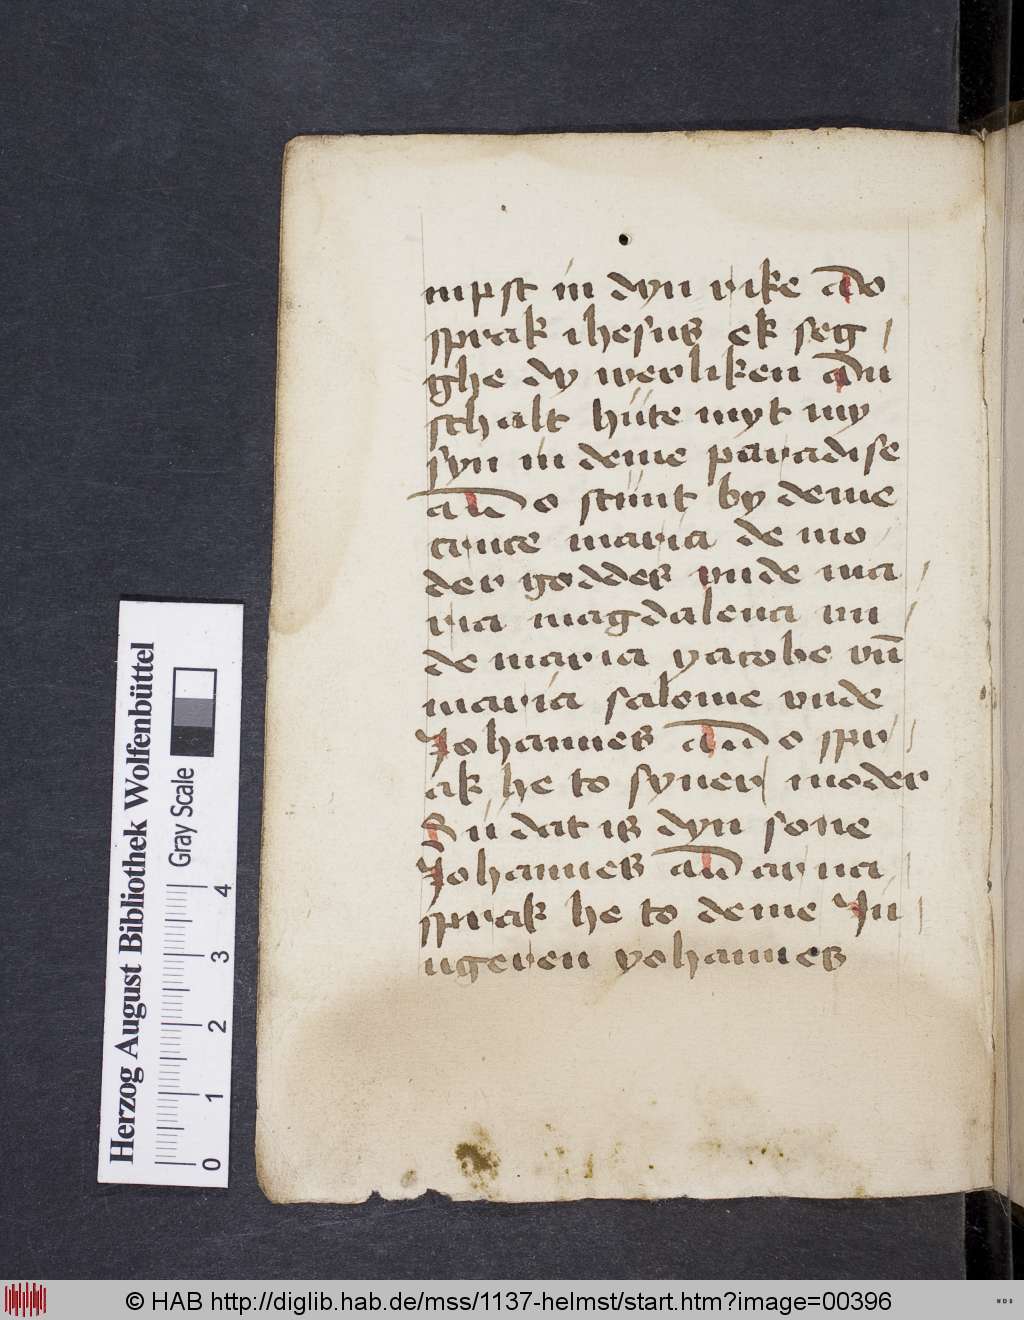 mpst in dyn rike do
sprak ihesus ek seg
ghe dy werliken du
schalt hüte myt my
syn in deme paradise
do stunt by deme
cruce maria de mo
der goddes unde ma
ria magdalena un
de maria yacobe vn̄
maria salome unde
Johannes do spr
ak he to syner moder
Su dat is dyn sone
Johannes dar na
sprak he to deme Ju
ngeren yohannes
Herzog August Bibliothek Wolfenbüttel
Gray Scale
0 1 2 3 4
© HAB http://diglib.hab.de/mss/1137-helmst/start.htm?image=00396